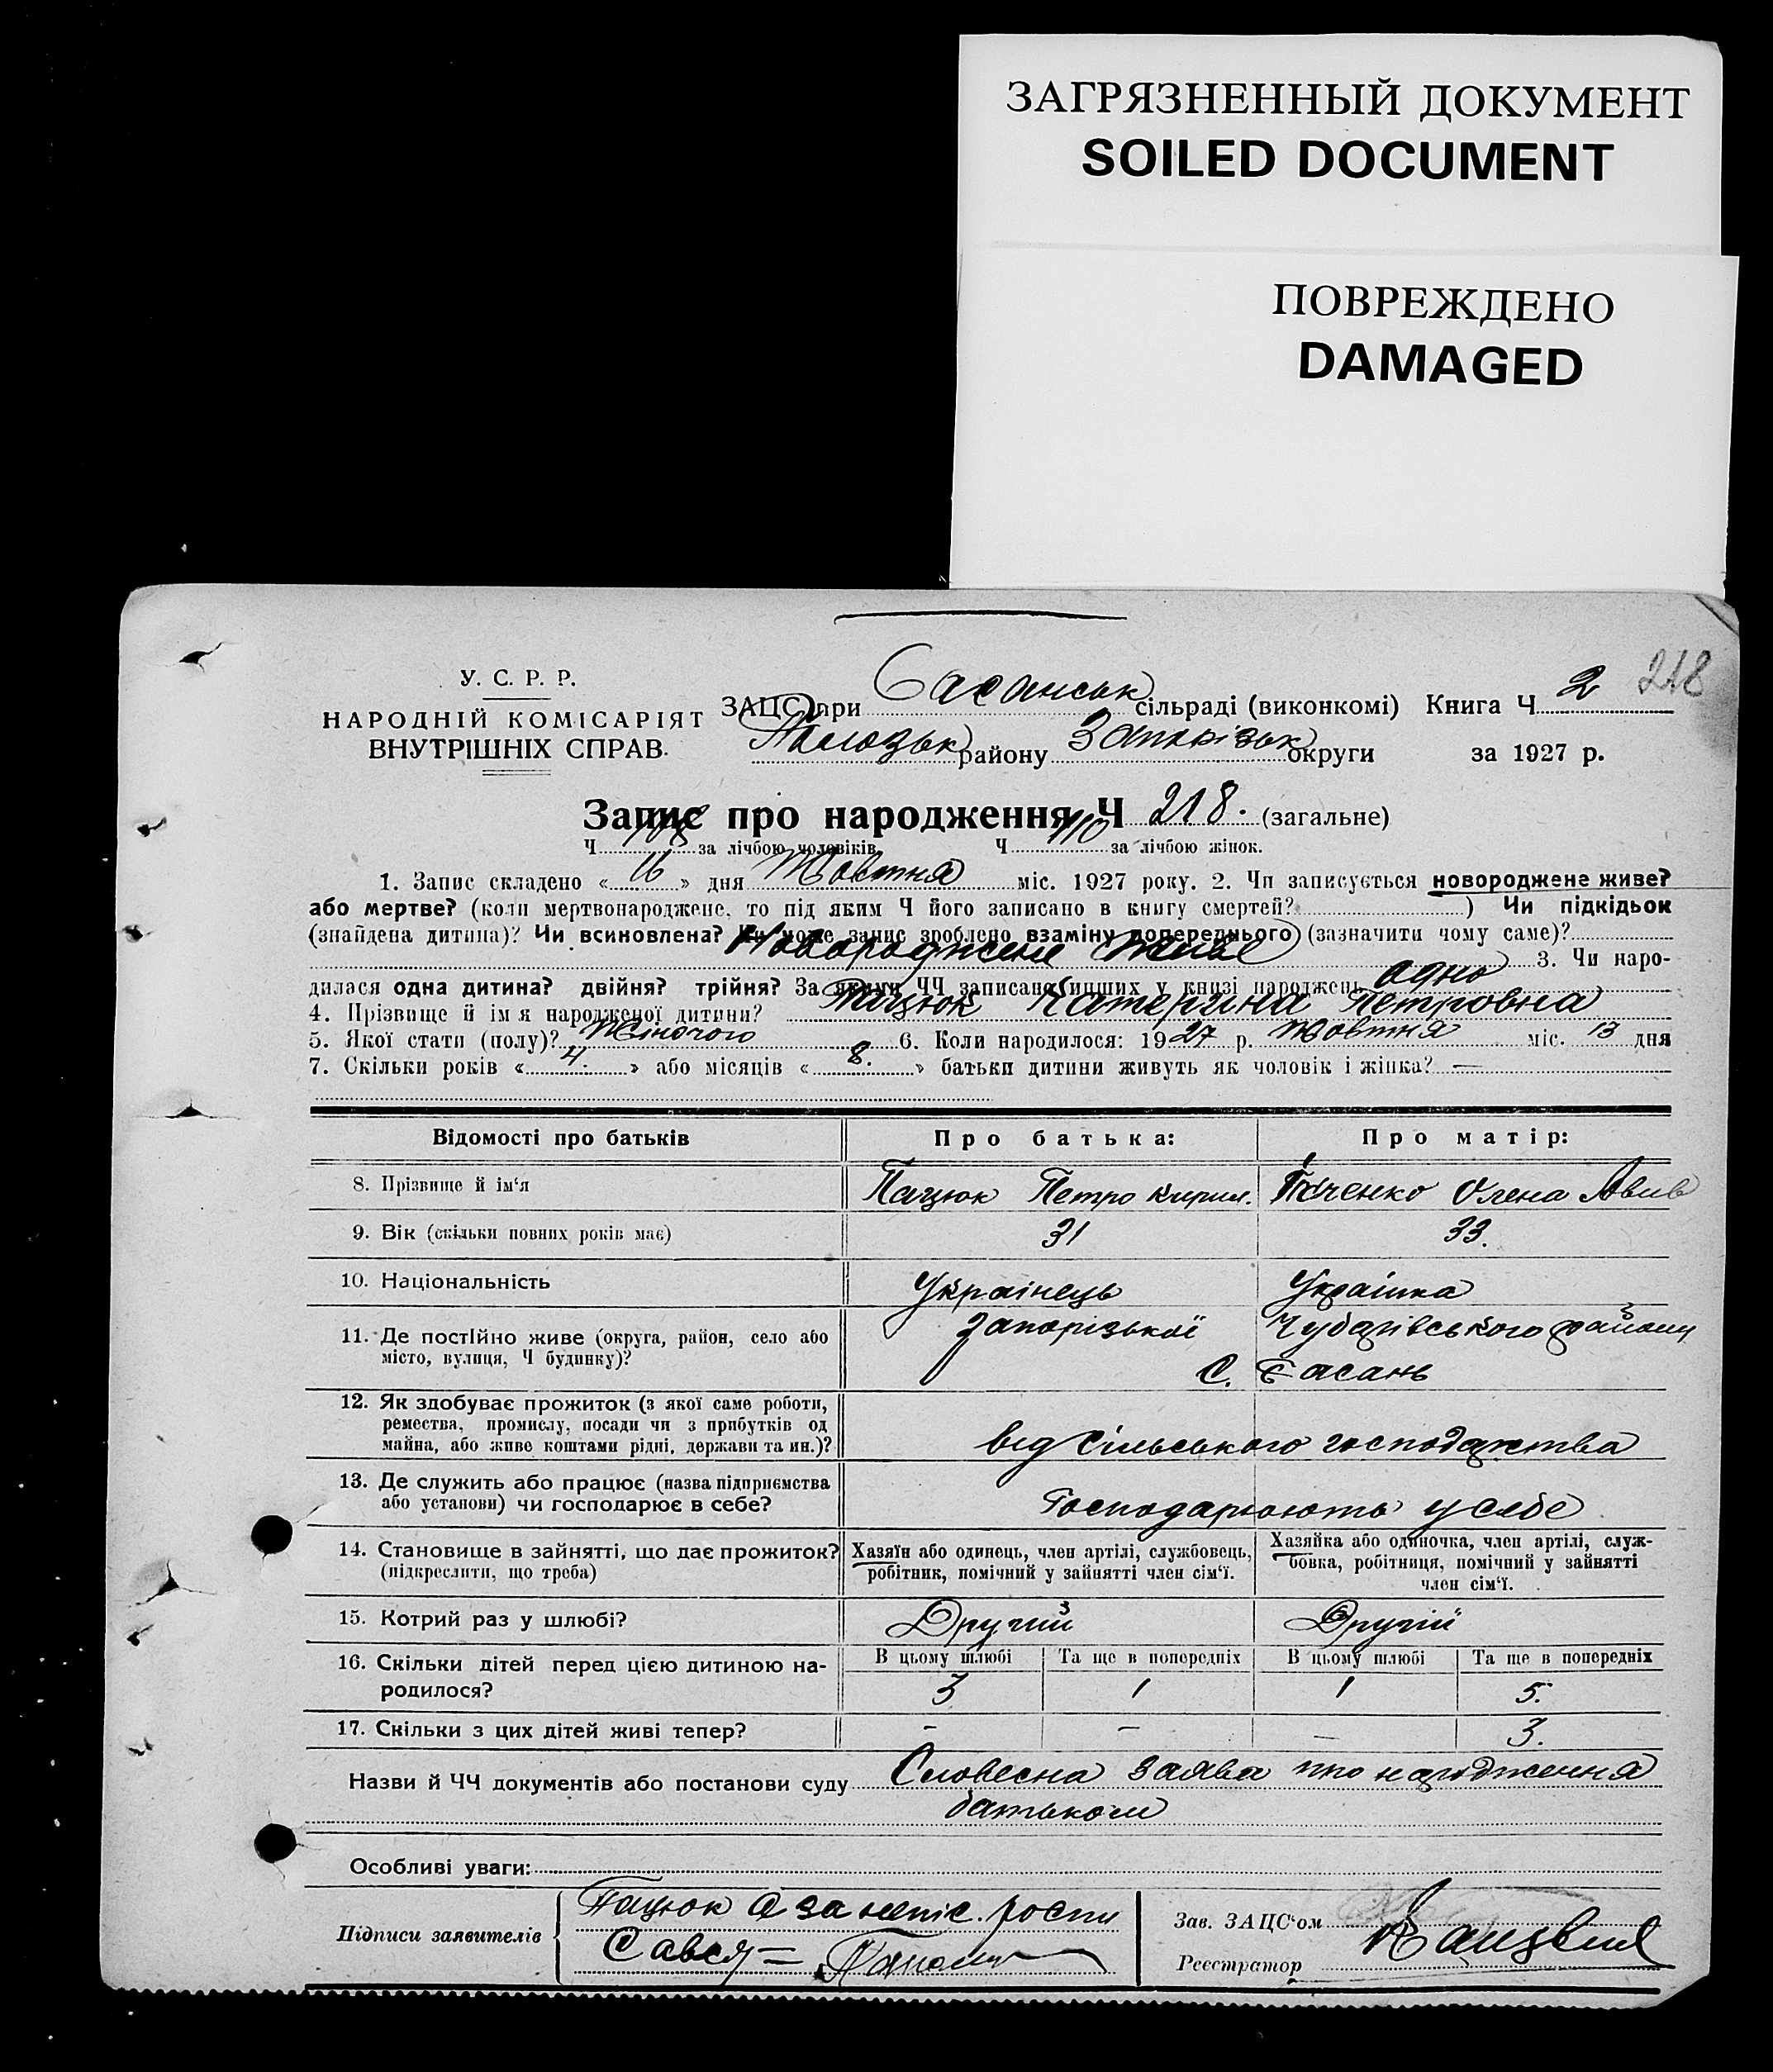 ЗАГРЯЗНЕННЫЙ ДОКУМЕНТ
SOILED DOCUMENT
ПОВРЕЖДЕНО
DAMAGED
218
У. С. Р. Р.
НАРОДНІЙ КОМІСАРІЯТ
ВНУТРІШНІХ СПРАВ.
ЗАЦС при Басанськ сільраді (виконкомі) Книга Ч 2
району Запорізьк округи за 1927 р.
Запис про народження Ч 218. (загальне)
Ч 108 за лічбою чоловіків. Ч 110 за лічбою жінок.
1. Запис складено « 16 » дня Жовтня міс. 1927 року. 2. Чи записується новороджене живе?
або мертве? (коли мертвонароджене, то під яким Ч його записано в книгу смертей? ) Чи підкідьок
(знайдена дитина)? Чи всиновлена? Чи може запис зроблено взаміну допереднього (зазначити чому саме)?
Новороджене живе 3. Чи наро-
дилася одна дитина? двійня? трійня? За якими ЧЧ записано инших у книзі народжень одно
4. Прізвище й ім'я народженої дитини? Пацюк Катерина Петровна
5. Якої стати (полу)? Жіночого 6. Коли народилося: 1927 р. Жовтня міс. 13 дня
7. Скільки років « 4. » або місяців « 8. » батьки дитини живуть як чоловік і жінка? —
Відомості про батьків Про батька: Про матір:
8. Прізвище й ім'я Пацюк Петро Кирил. Ткаченко Олена Авив
9. Вік (скільки повних років має) 31 33.
10. Національність Українець Українка
11. Де постійно живе (округа, район, село або Запорізької Чубарівського району
місто, вулиця, Ч будинку)? С. Басань
12. Як здобуває прожиток (з якої саме роботи,
ремества, промислу, посади чи з прибутків од
майна, або живе коштами рідні, держави та ин.)? від сільського господарства
13. Де служить або працює (назва підприємства
або установи) чи господарює в себе? Господарюють у себе
14. Становище в зайнятті, що дає прожиток? Хазяїн або одинець, член артілі, службовець, Хазяйка або одиночка, член артілі, служ-
(підкреслити, що треба) робітник, помічний у зайнятті член сім'ї. бовка, робітниця, помічний у зайнятті
член сім'ї.
15. Котрий раз у шлюбі? Другий Другий
16. Скільки дітей перед цією дитиною на- В цьому шлюбі Та ще в попередніх В цьому шлюбі Та ще в попередніх
родилося? 3 1 1 5.
17. Скільки з цих дітей живі тепер? – – – 3.
Назви й ЧЧ документів або постанови суду Словесна заява про народження
батьком
Особливі уваги:
Підписи заявителів Пацюк а за непис. роспи
Сався
Зав. ЗАЦС'ом
Реєстратор